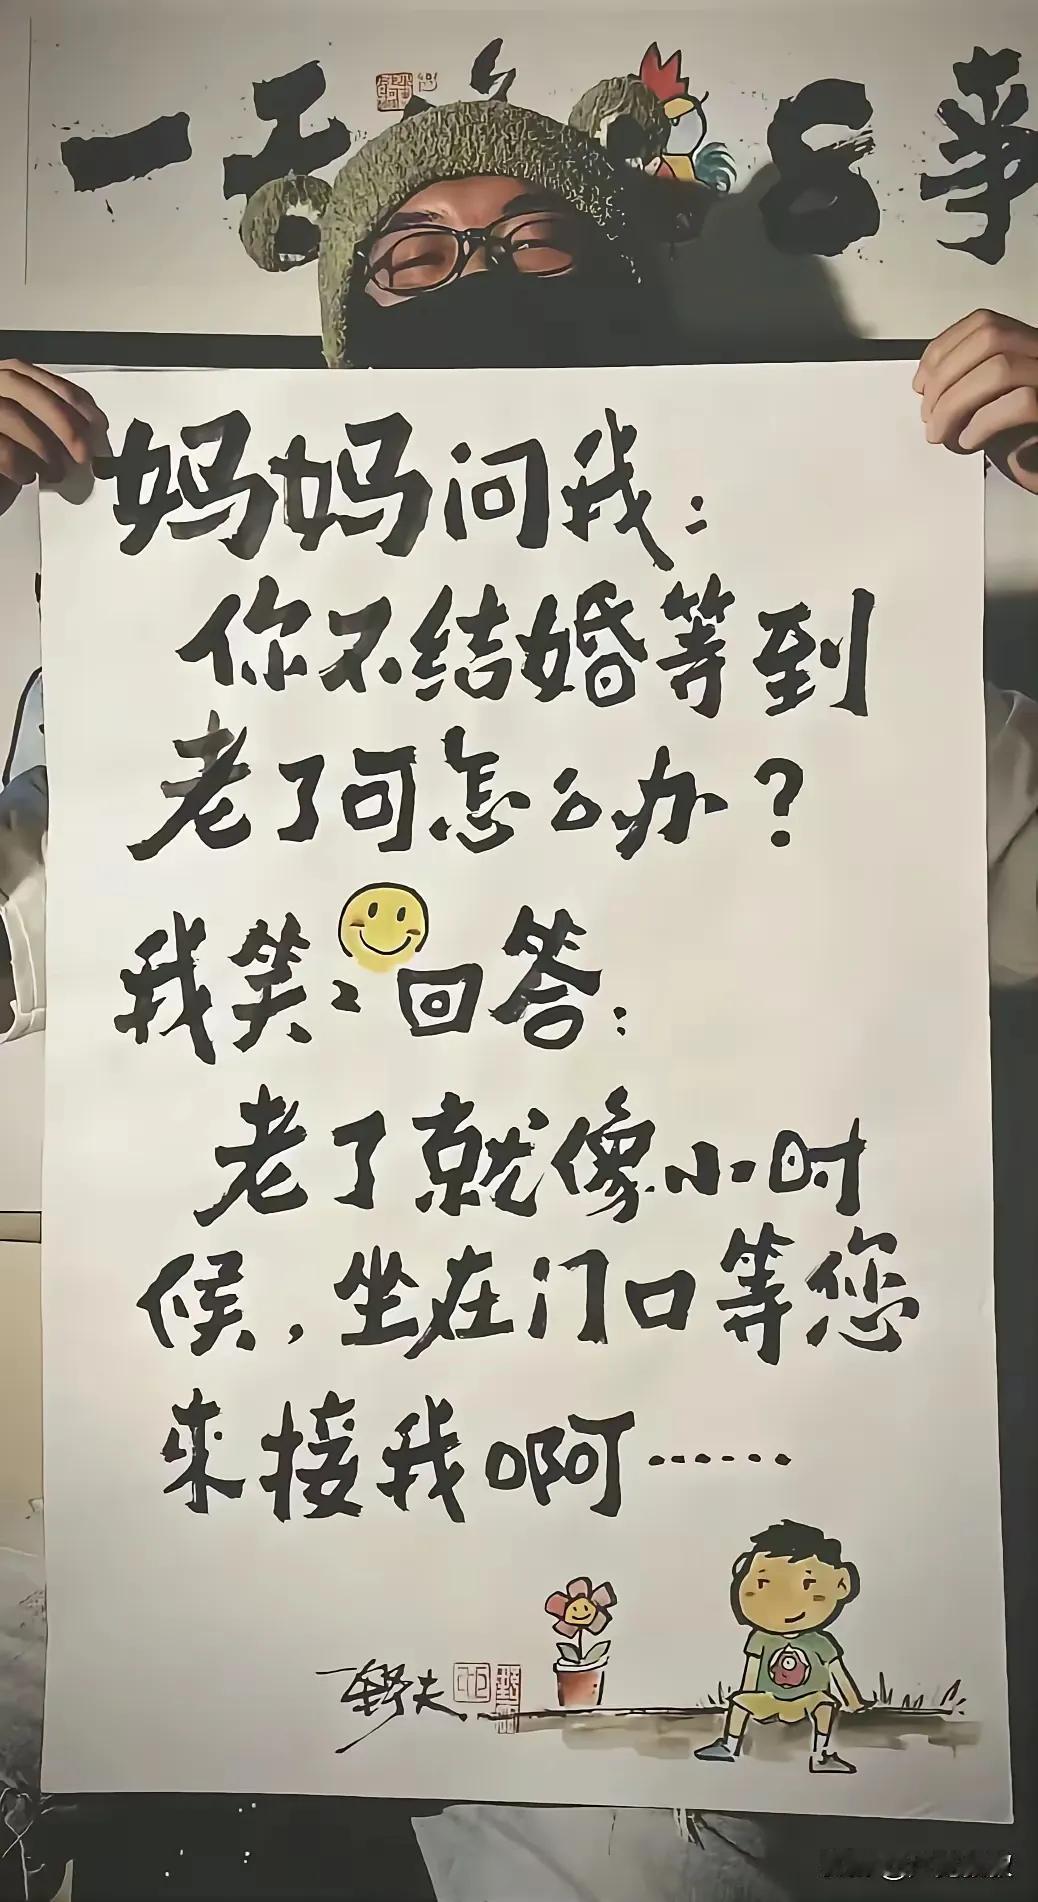 一天 8事
妈妈问我：
你不结婚等到
老了可怎么办？
我笑笑回答：
老了就像小时
候，坐在门口等您
来接我啊……
一野夫